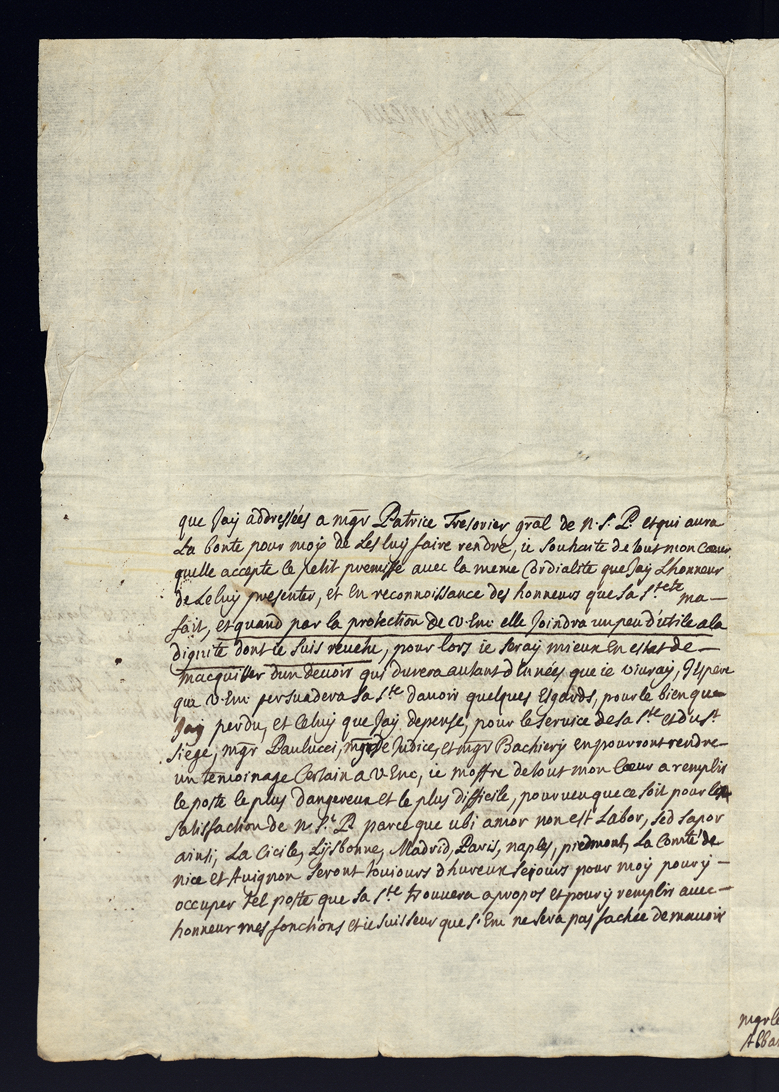 que Jay addressées a mgr Patrice Tresorier gñal de n. S. P. et qui aura
La bonté pour moy de Les luy faire rendre, ie souhaite de tout mon Cœur
quelle accepte ce petit premisse avec la meme Cordialité que Jay Lhonneur
de Le luy presenter, et En reconnoissance des honneurs que sa Stete ma
fait, et quand par la protection de V Em: elle Joindra un peu dutile a la
dignité dont ie suis revetu, pour lors ie seray mieux En estat de
macquitter dun devoir qui durera autant dannées que ie vivray, Jespere
que V. Em: persuadera sa Ste davoir quelques Esgards, pour le bien que
Jay perdu, et Celuy que Jay depensé, pour le service de sa Ste et du St
siege, mgr Paulucci, mgr de Judice, et mgr Bachiery en pourront rendre
un temoinage Certain a V Em:, ie moffre de tout mon Cœur a remplir
le poste le plus dangereux et le plus difficile, pourveu que ce soit pour la
satisfaction de n. St. P. parce que ubi amor non est Labor, sed sapor
ainsi, La Cicile, Lysbonne, Madrid, Paris, naples, piedmont, La Comté de
nice et Avignon seront toujours dhureux sejours pour moy pour y
occuper tel poste que sa Ste trouvera apropos et pour y remplir avec
honneur mes fonctions et ie suis seur que S. Em: ne sera pas fachée de mavoir
mgr le
Abba